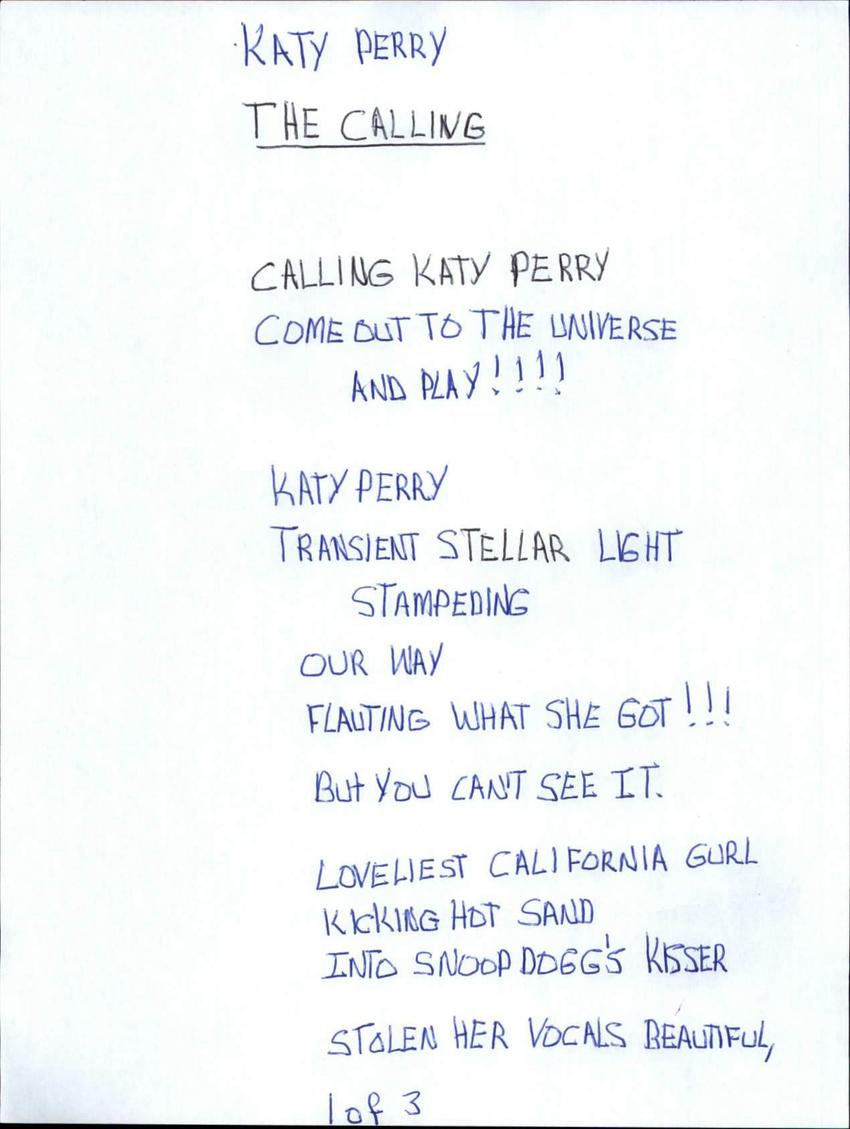 KATY PERRY
THE CALLING
CALLING KATY PERRY
COME OUT TO THE UNIVERSE
AND PLAY!!!!
KATY PERRY
TRANSIENT STELLAR LIGHT
STAMPEDING
OUR WAY
FLAUTING WHAT SHE GOT!!!
BUt YOU CAN'T SEE IT.
LOVELIEST CALIFORNIA GURL
KICKING HOT SAND
INTO SNOOP DOGG'S KISSER
STOLEN HER VOCALS BEAUTIFUL,
1 of 3